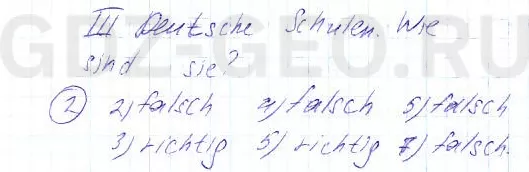 GDZ-GEO.RU
III Deutsche Schulen. Wie
sind sie?
2 2) falsch 4) falsch 5) falsch
3) richtig 5) richtig 7) falsch.